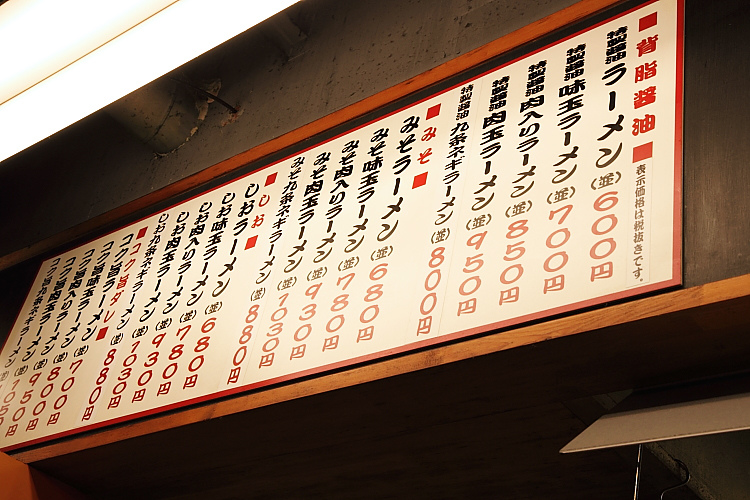 ■背脂醤油■ 表示価格は税抜きです。
特製醤油ラーメン(並)600円
特製醤油味玉ラーメン(並)700円
特製醤油肉入りラーメン(並)850円
特製醤油肉玉ラーメン(並)950円
特製醤油九条ネギラーメン(並)800円
■みそ■
みそラーメン(並)680円
みそ味玉ラーメン(並)780円
みそ肉入りラーメン(並)930円
みそ肉玉ラーメン(並)1030円
みそ九条ネギラーメン(並)880円
■しお■
しおラーメン(並)680円
しお味玉ラーメン(並)780円
しお肉入りラーメン(並)930円
しお肉玉ラーメン(並)1030円
しお九条ネギラーメン(並)880円
■コク旨ダレ■
コク旨ラーメン(並)700円
コク旨味玉ラーメン(並)800円
コク旨肉入りラーメン(並)950円
コク旨肉玉ラーメン(並)1050円
コク旨九条ネギラーメン